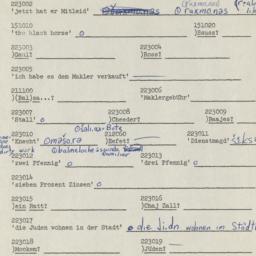 223002
'jetzt hat er Mitleid' ⊙raxmonas
151010 151020
'the black horse' ⊙ )Sauss?
225003 223004
)Gaul? )Ross?
223005
'ich habe es dem Makler verkauft'
211100 223006
)(Balan...? 'Maklergebühr'
223007 223008 223009
'Stall' ⊙ )Cheeder? )Baajes?
223010 212050 223011
'Knecht' Omašora )Eefet? 'Dienstmagd'
223012 223013
'zwei Pfennig' ⊙ 'drei Pfennig' ⊙
223014
'sieben Prozent Zinsen' ⊙
223015 223016
)ein Ratt? )Chaj Zall?
223017
'die Juden wohnen in der Stadt' ⊙ die Jidn wohnen im
223018 223019
)Mocken? )Jüden?